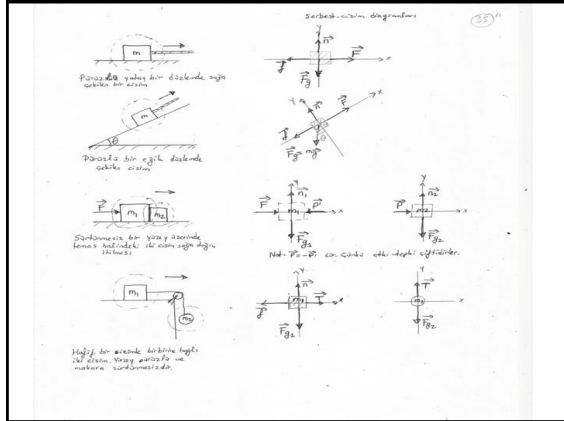 Serbest-cisim diagramları
35
m
Pürüzlü yatay bir düzlemde sağa
çekilen bir cisim
y
n
F
f
x
Fg
m
θ
Pürüzlü bir eğik düzlemde
çekilen cisim
y
n
F
x
f
θ
Fg = mg
F
m1
m2
Sürtünmesiz bir yüzey üzerinde
temas halindeki iki cisim sağa doğru
itilmesi
y
n1
F
m1
P'
x
Fg1
y
n2
P
m2
x
Fg2
Not: P = -P' dir. Çünkü etki-tepki çiftidirler.
m1
m2
Hafif bir sicimle birbirine bağlı
iki cisim. Yüzey pürüzlü ve
makara sürtünmesizdir.
y
n
f
m1
T
x
Fg1
y
T
m2
x
Fg2